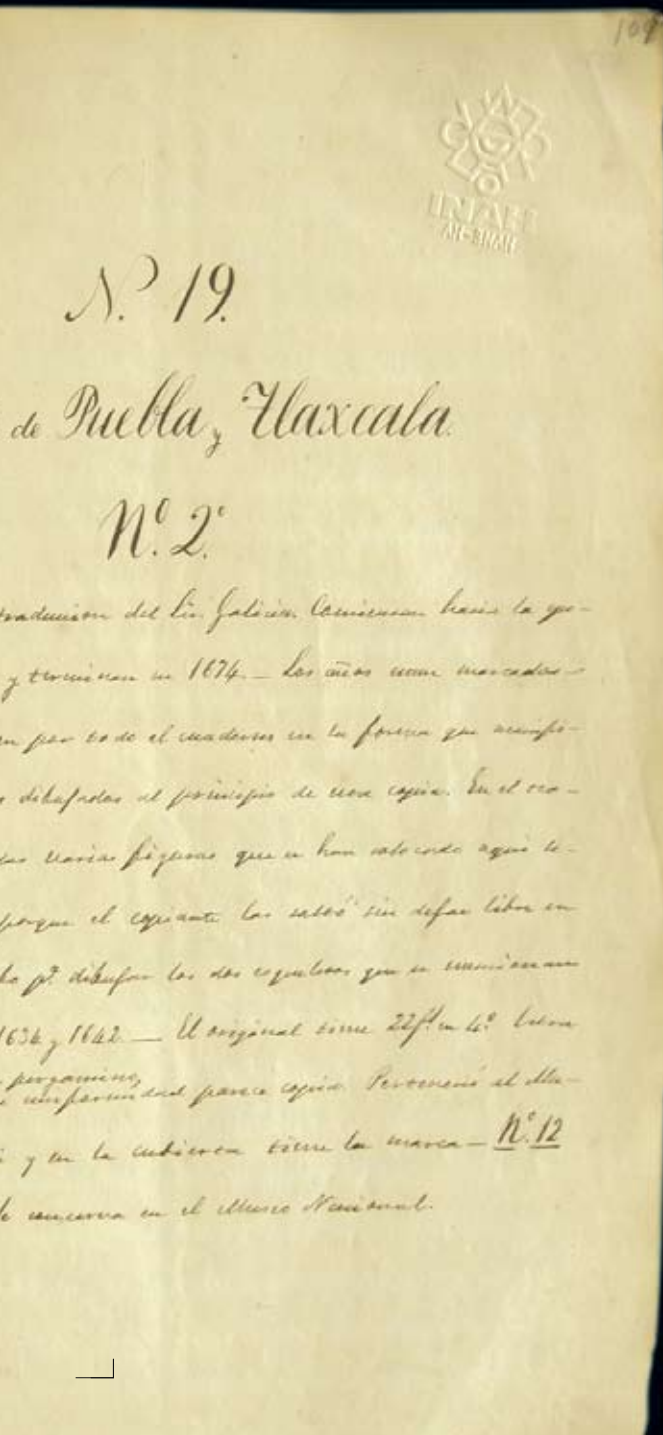 109
INAH
AH-BNAH
N.º 19.
de Puebla y Tlaxcala.
Nº. 2º.
traduccion del Lic. Galicia. Comienzan hacia la
y terminan en 1674. — Los años marcados
por todo el cuaderno en la forma que
dibujados al principio de esta copia. En el
varias figuras que se han colocado aqui
porque el copiante las saltó sin dejar libre en
pª dibujar los dos esqueletos que se mencionan
1634 y 1642. — El original tiene 22 fˢ en 4º.
pergamino,
parece copia. Perteneció al Mu-
y en la cubierta tiene la marca — Nº. 12
conserva en el Museo Nacional.